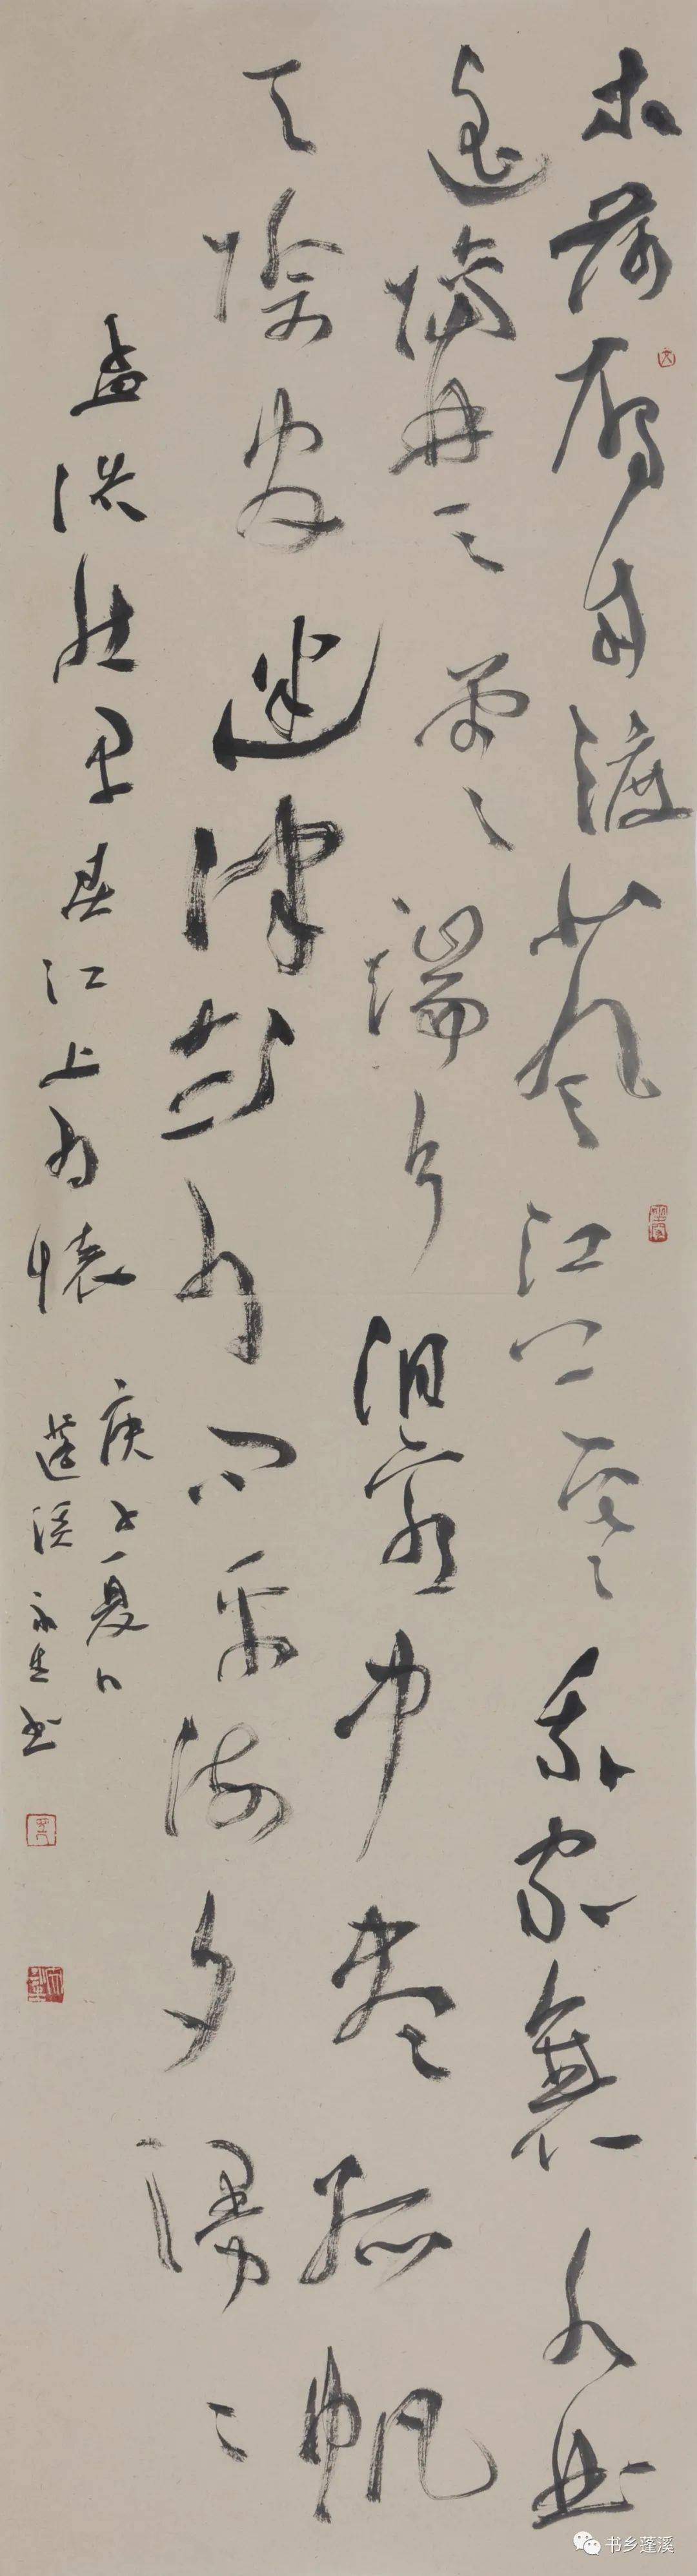 木落雁南渡北風江上寒我家襄水曲
遥隔楚雲端乡泪客中盡孤帆
天際看迷津欲有問平海夕漫〻
孟浩然早江上有懷
庚子夏日
蓬溪永生书
书乡蓬溪